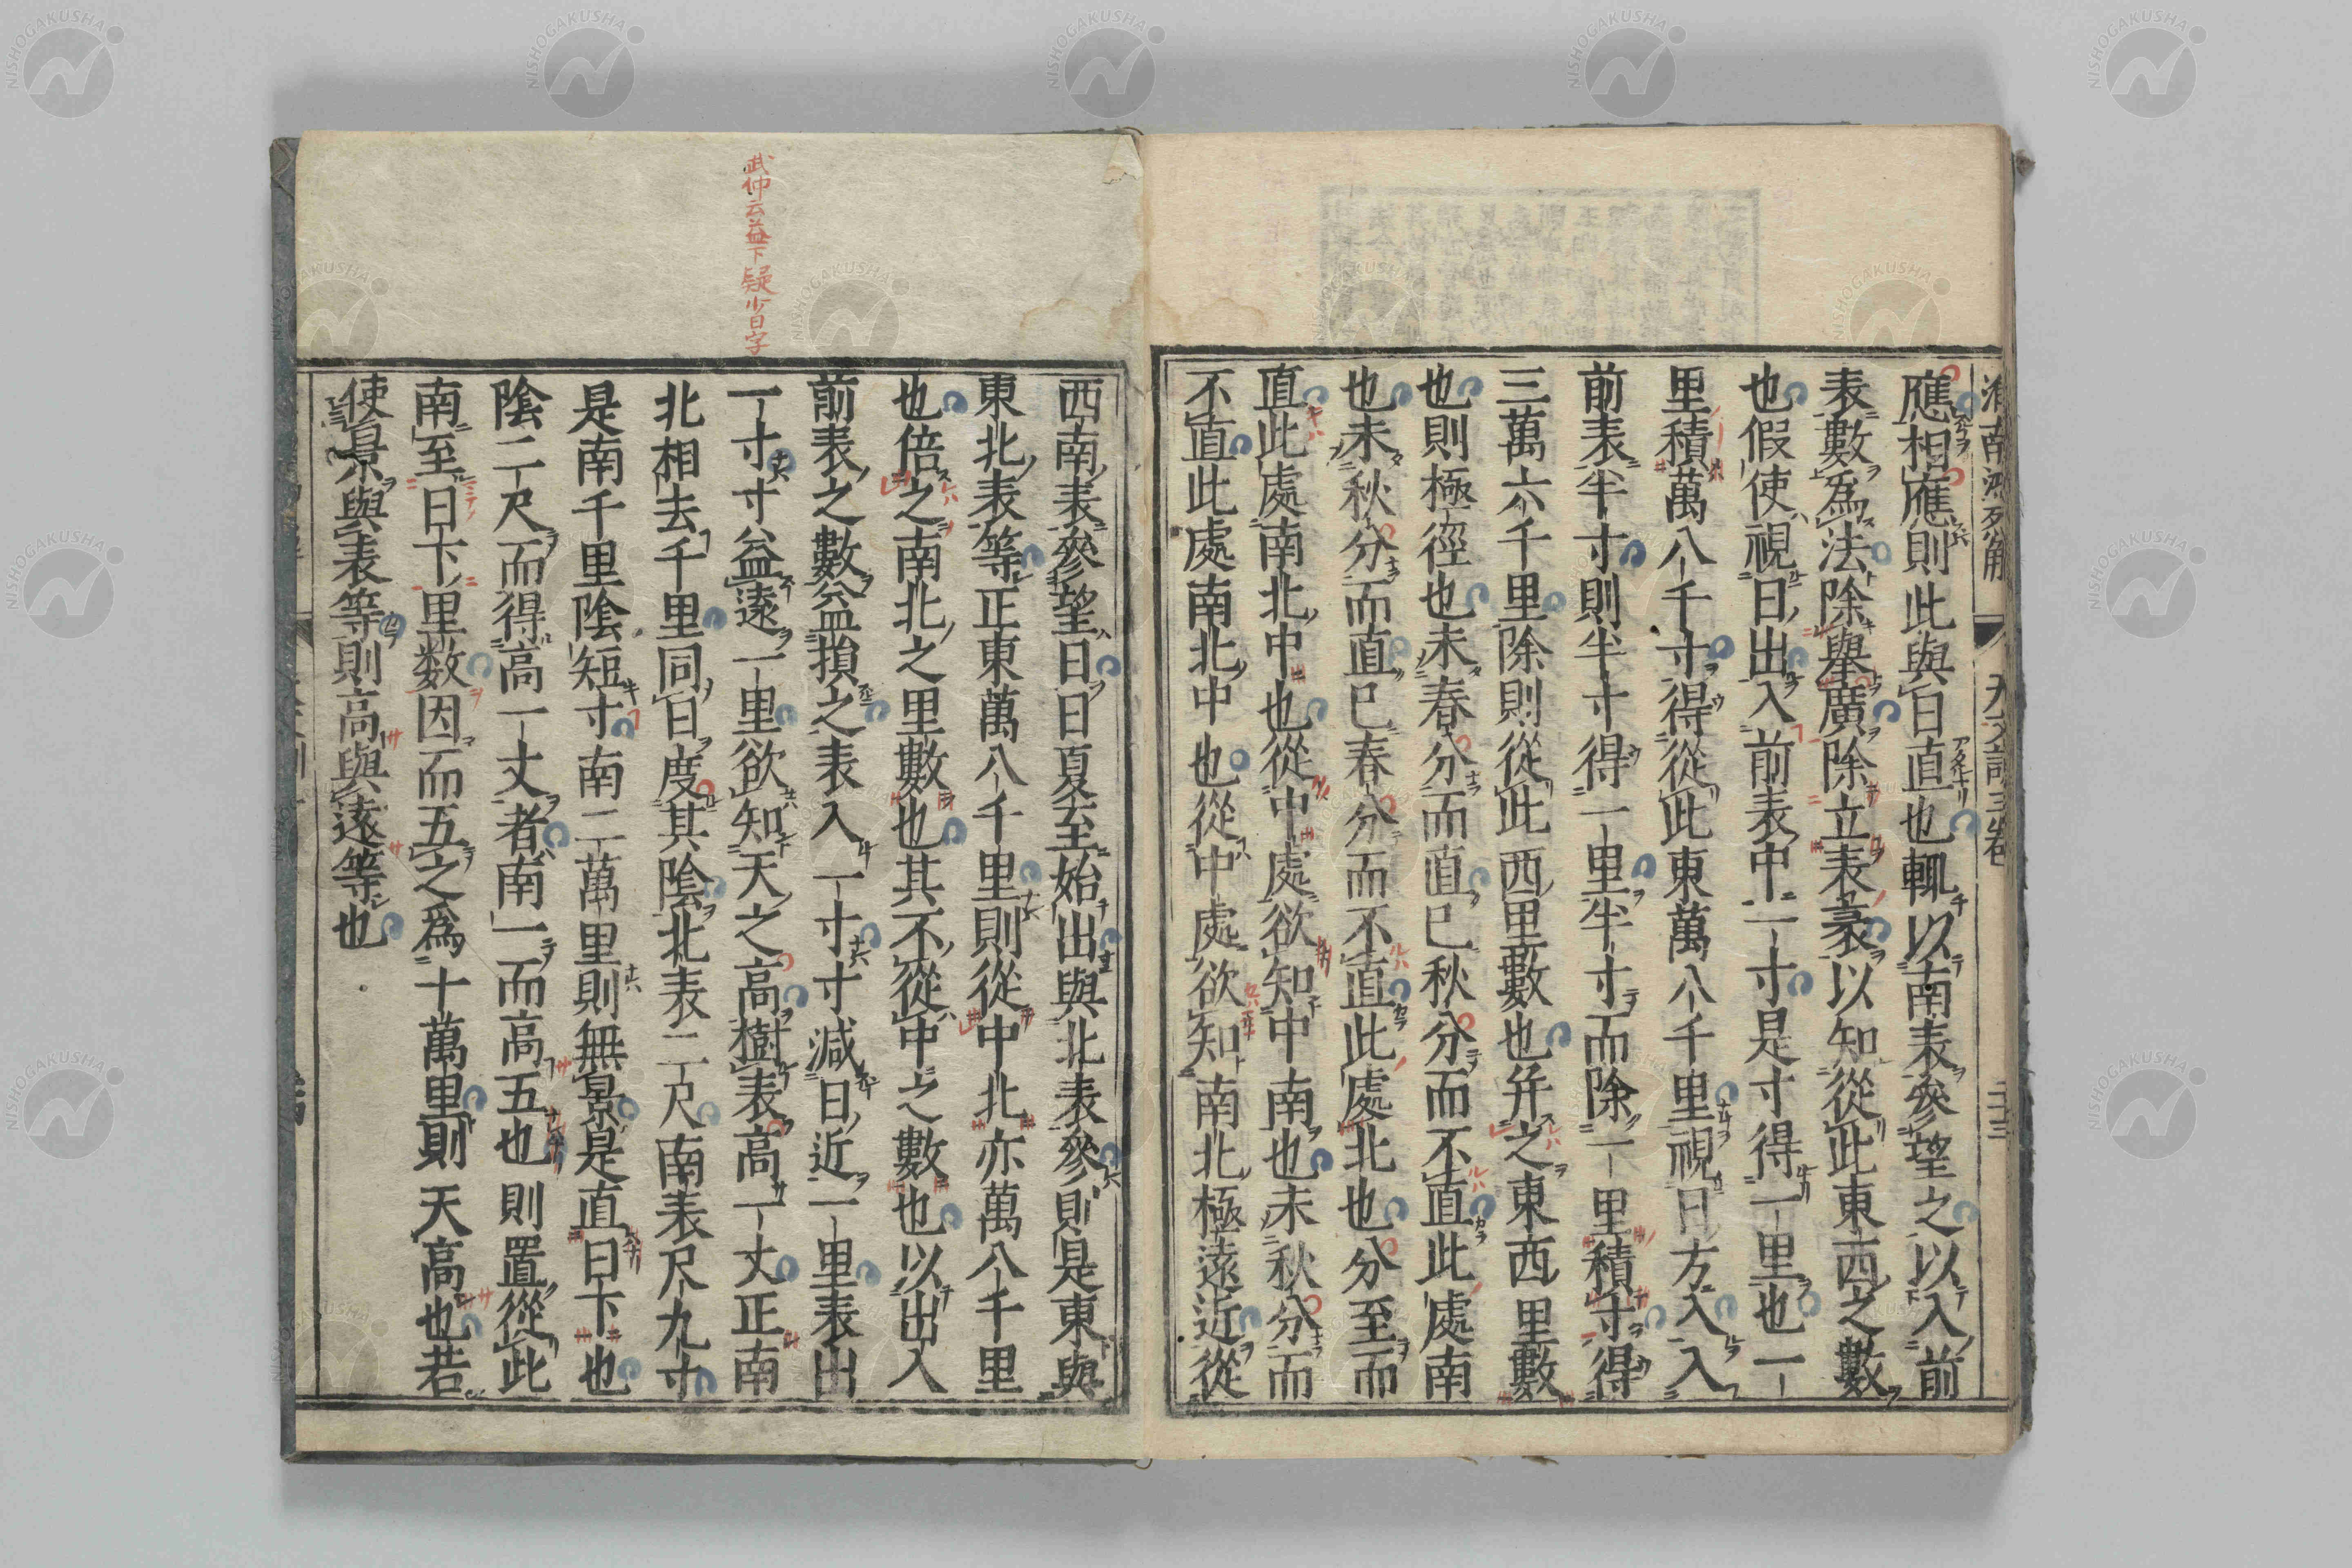 應相應則此與日直也輒以南表參望之以入前
表數爲法除舉廣除立表袤以知從此東西之數
也假使視日出入前表中一寸是寸得一里也一
里積萬八千寸得從此東萬八千里視日方入入
前表半寸則半寸得一里半寸而除一里積寸得
三萬六千里除則從此西里數也并之東西里數
也則極徑也未春分而直已秋分而不直此處南
也未秋分而直已春分而不直此處北也分至而
直此處南北中也從中處欲知中南也未秋分而
不直此處南北中也從中處欲知南北極遠近從
西南表參望日日夏至始出與北表參則是東與
東北表等正東萬八千里則從中北亦萬八千里
也倍之南北之里數也其不從中之數也以出入
前表之數益損之表入一寸寸減日近一里表出
一寸寸益遠一里欲知天之高樹表高一丈正南
北相去千里同日度其陰北表二尺南表尺九寸
是南千里陰短寸南二萬里則無景是直日下也
陰二尺而得高一丈者南一而高五也則置從此
南至日下里数因而五之爲十萬里則天高也若
使景與表等則高與遠等也
武仲云益下疑少日字
NISHOGAKUSHA